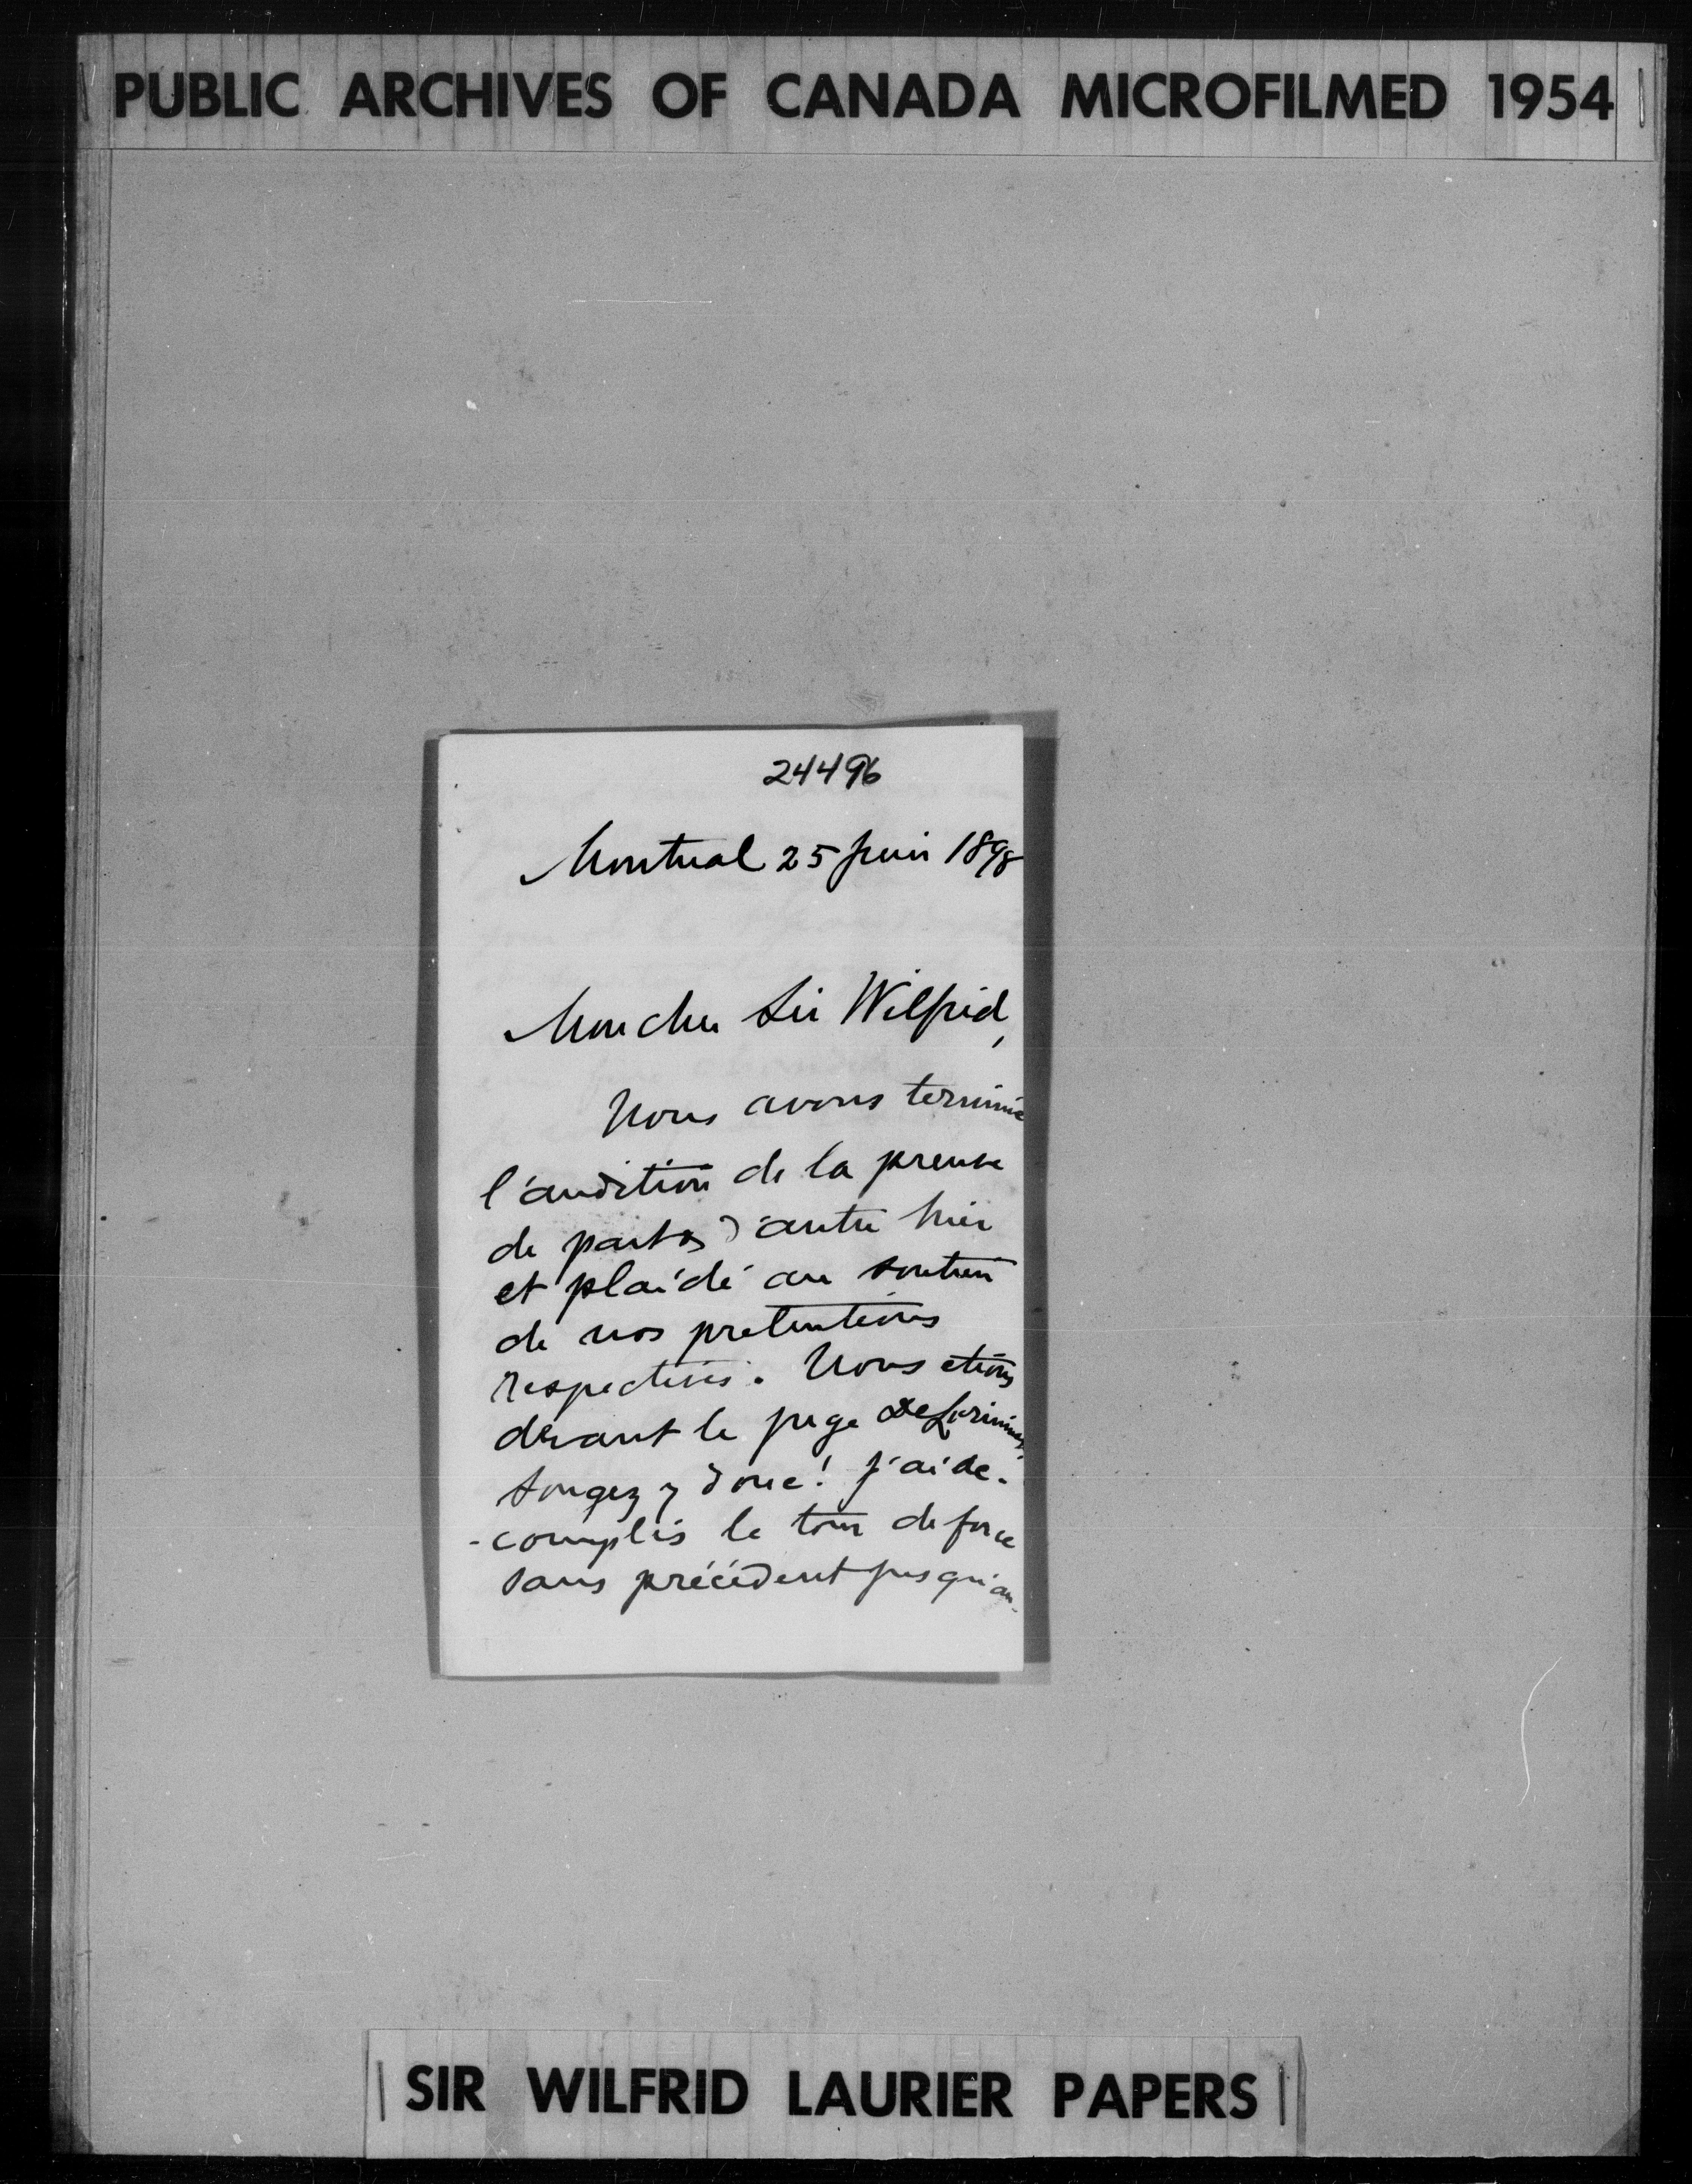 PUBLIC ARCHIVES OF CANADA MICROFILMED 1954
24496
Montreal 25 juin 1898
Mon cher Sir Wilfrid,
Nous avons terminé
l'audition de la preuve
de part & d'autre hier
et plaidé au soutien
de nos pretentions
respectives. Nous etions
devant le juge DeLorimier,
songez y donc! j'ai ac-
-complis le tour de force
sans précédent jusqu'au-
SIR WILFRID LAURIER PAPERS